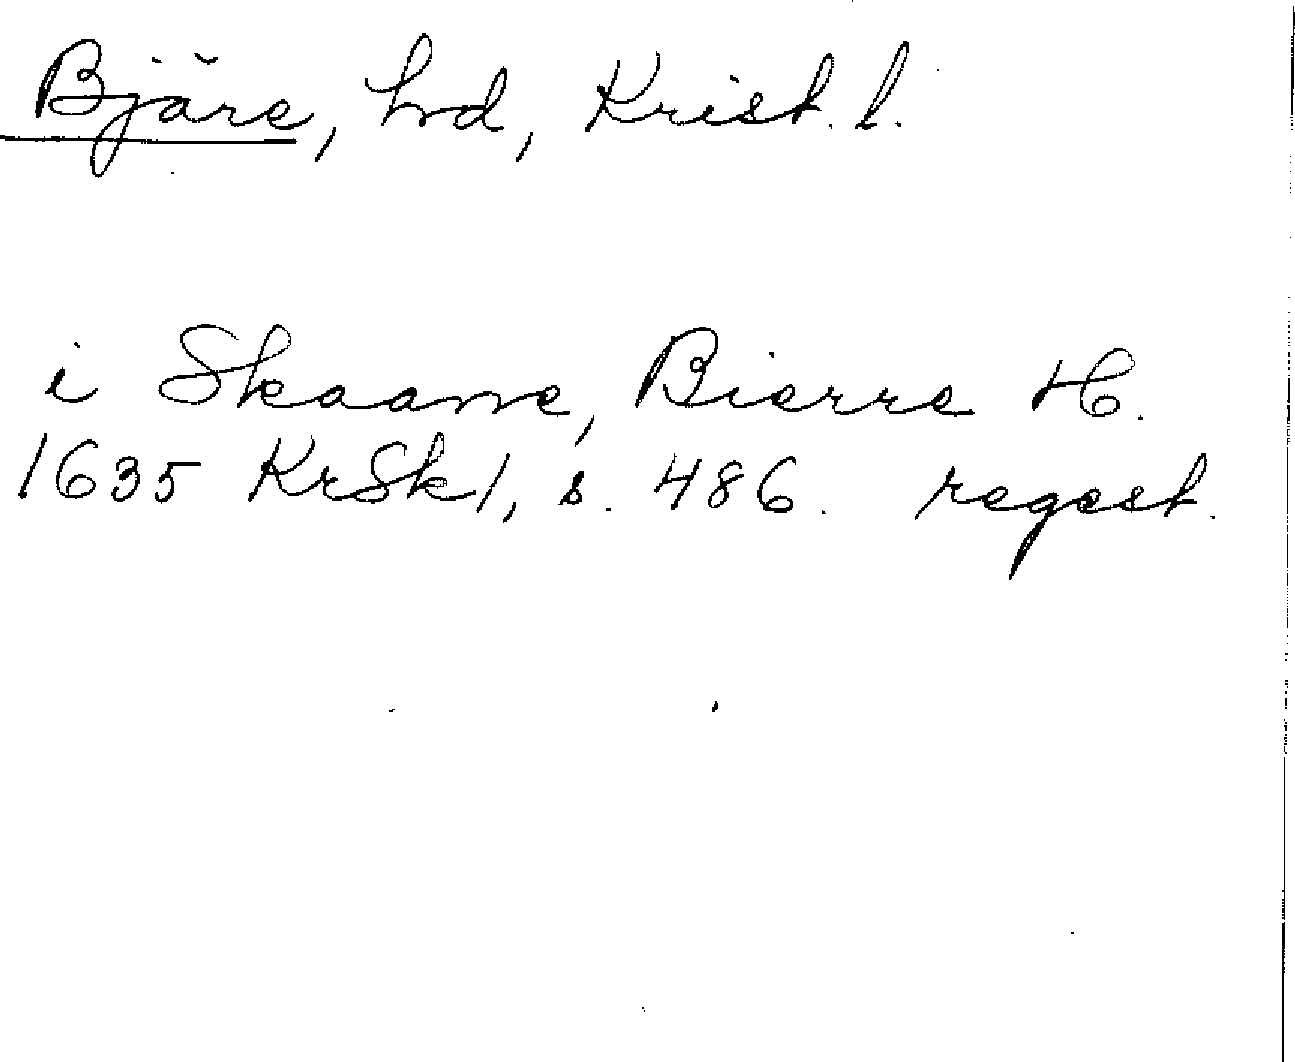 Bjäre, hd, Krist. l.
i Skaane, Bierre H.
1635 KrSkl, s. 486. regest.